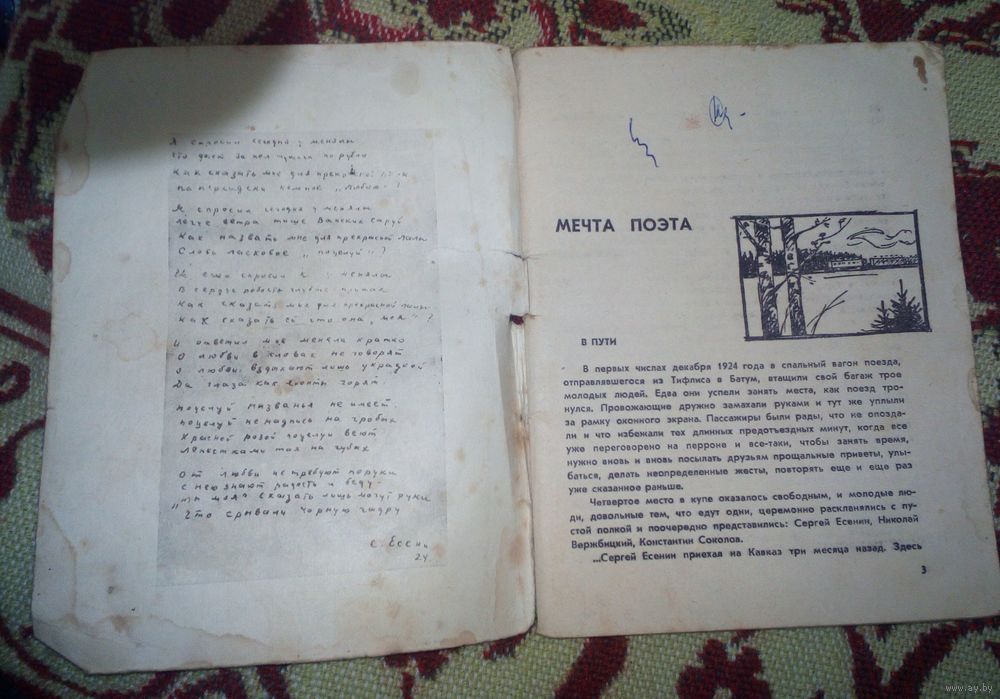 Я спросил сегодня у менялы
Что дает за пол тумана по рублю
Как сказать мне для прекрасной Лалы
По персидски нежное „люблю“?
Я спросил сегодня у менялы
Легче ветра тише Ванских струй
Как назвать мне для прекрасной Лалы
Слово ласковое „поцелуй“?
И еще спросил я у менялы
В сердце робость глубже притая
Как сказать мне для прекрасной Лалы
Как сказать ей что она „моя“?
И ответил мне меняла кратко
О любви в словах не говорят
О любви вздыхают лишь украдкой
Да глаза как яхонты горят.
Поцелуй названья не имеет.
Поцелуй не надпись на гробах
Красной розой поцелуи веют
Лепестками тая на губах
От любви не требуют поруки
С нею знают радость и беду.
„Ты моя“ сказать лишь могут руки
Что срывали черную чадру
С. Есенин
24
МЕЧТА ПОЭТА
В ПУТИ
В первых числах декабря 1924 года в спальный вагон поезда,
отправлявшегося из Тифлиса в Батум, втащили свой багаж трое
молодых людей. Едва они успели занять места, как поезд тро-
нулся. Провожающие дружно замахали руками и тут же уплыли
за рамку оконного экрана. Пассажиры были рады, что не опозда-
ли и что избежали тех длинных предотъездных минут, когда все
уже переговорено на перроне и все-таки, чтобы занять время,
нужно вновь и вновь посылать друзьям прощальные приветы, улы-
баться, делать неопределенные жесты, повторять еще и еще раз
уже сказанное раньше.
Четвертое место в купе оказалось свободным, и молодые лю-
ди, довольные тем, что едут одни, церемонно раскланялись с пу-
стой полкой и поочередно представились: Сергей Есенин, Николай
Вержбицкий, Константин Соколов.
...Сергей Есенин приехал на Кавказ три месяца назад. Здесь
3
www.ay.by